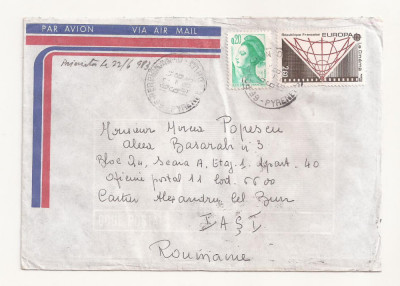 PAR AVION VIA AIR MAIL
0,20
République Française EUROPA
2,60
Monsieur Mircea Popescu
Aleea Basarabi n° 3
Bloc D4, Scara A, Etaj. 1. Apart. 40
Oficiul postal 11 cod. 6600
Cartier Alexandru cel Bun
IAŞI
Roumanie